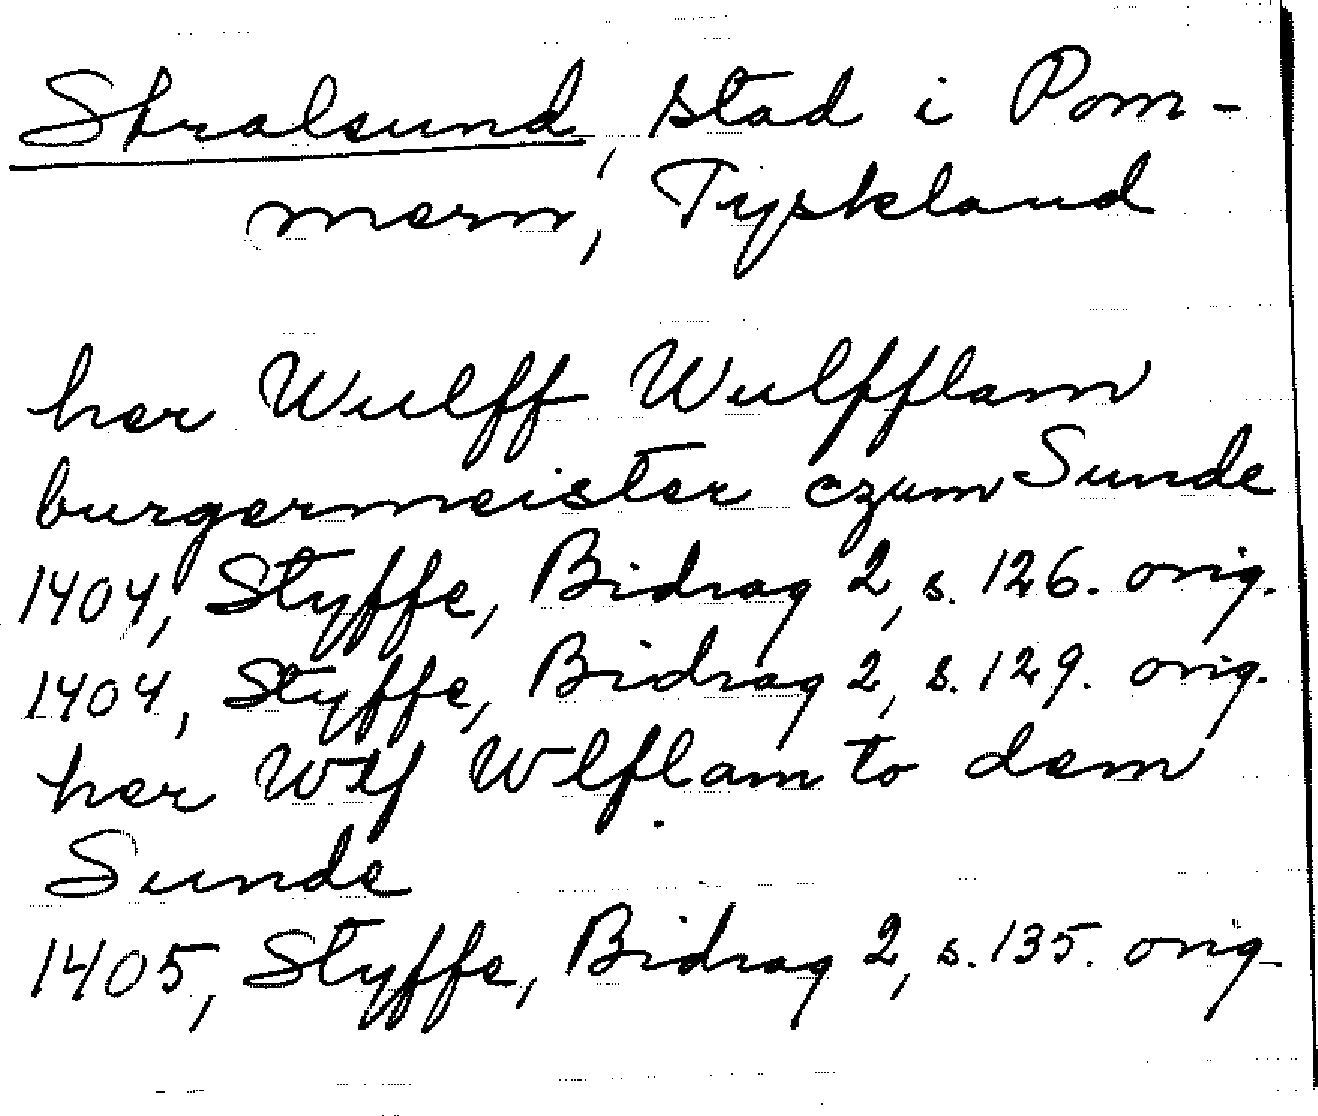 Stralsund, stad i Pom-
mern, Tyskland
her Wulff Wulfflam
burgermeister czum Sunde
1404, Styffe, Bidrag 2, s. 126. orig.
1404, Styffe, Bidrag 2, s. 129. orig.
her Wlf Wlflam to dem
Sunde
1405, Styffe, Bidrag 2, s. 135. orig